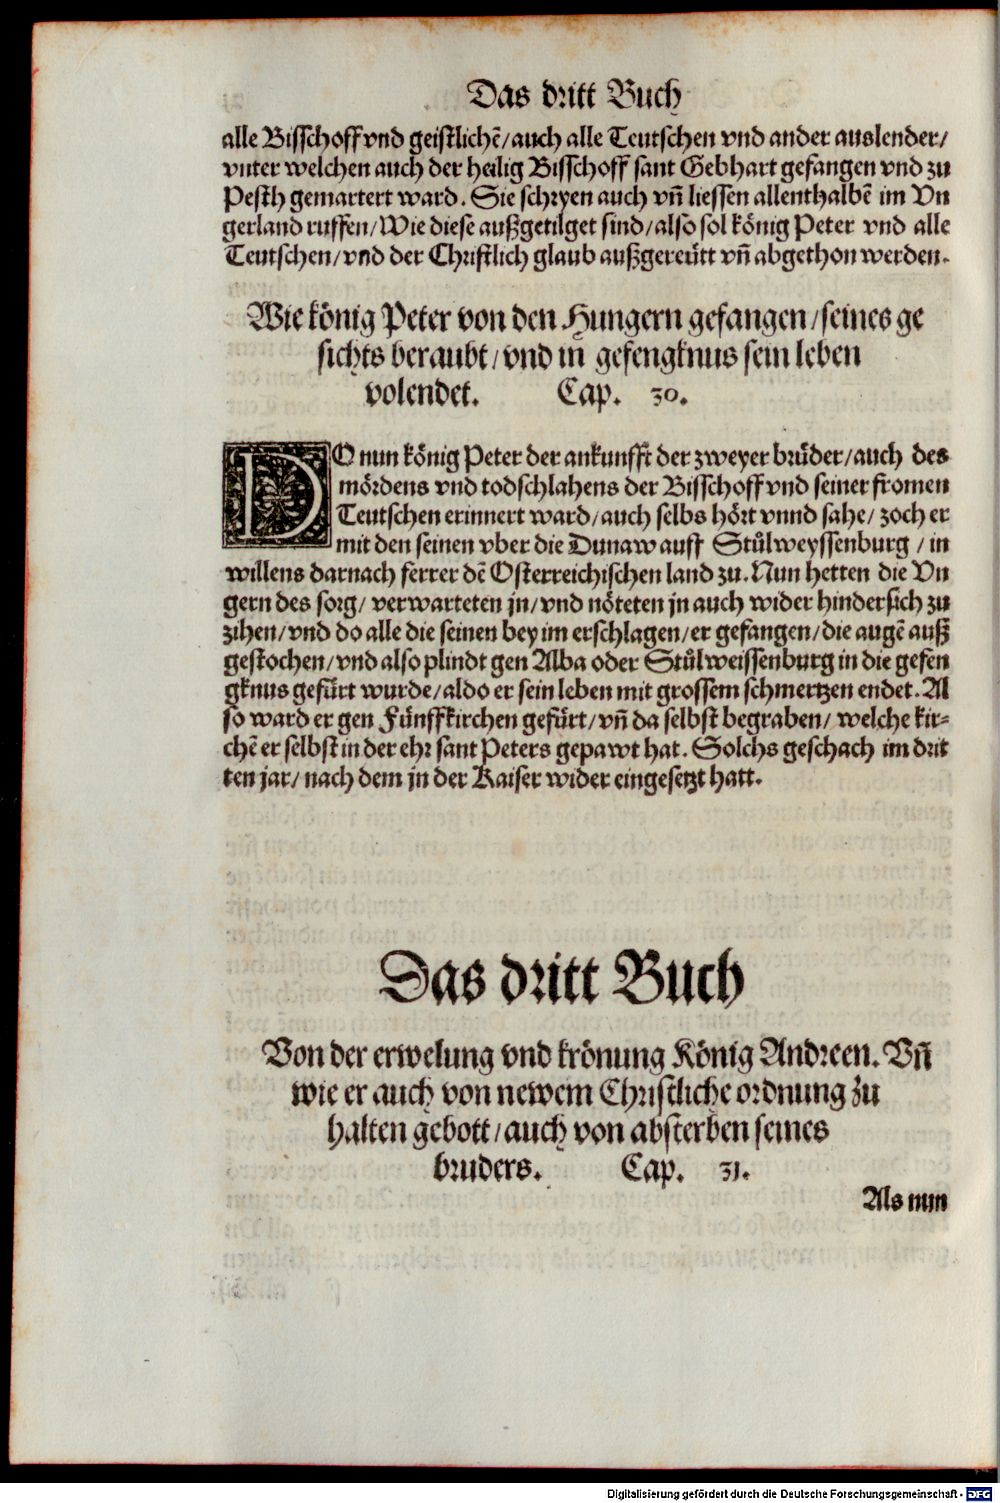 Das dritt Buch
alle Bisschoff vnd geistlichē/auch alle Teutschen vnd ander auslender/
vnter welchen auch der heilig Bisschoff sant Gebhart gefangen vnd zu
Pesth gemartert ward. Sie schryen auch vñ liessen allenthalbē im Vn
gerland ruffen/Wie diese außgetilget sind/also sol könig Peter vnd alle
Teutschen/vnd der Christlich glaub außgereütt vñ abgethon werden.
Wie könig Peter von den Hungern gefangen/seines ge
sichts beraubt/vnd in gefengknus sein leben
volendet. Cap. 30.
DO nun könig Peter der ankunfft der zweyer brüder/auch des
mördens vnd todschlahens der Bisschoff vnd seiner fromen
Teutschen erinnert ward/auch selbs hört vnnd sahe/zoch er
mit den seinen vber die Dunaw auff Stůlweyssenburg/in
willens darnach ferrer dē Osterreichischen land zu. Nun hetten die Vn
gern des sorg/verwarteten jn/vnd nöteten jn auch wider hindersich zu
zihen/vnd do alle die seinen bey im erschlagen/er gefangen/die augē auß
gestochen/vnd also plindt gen Alba oder Stůlweissenburg in die gefen
gknus gefürt wurde/aldo er sein leben mit grossem schmertzen endet. Al
so ward er gen Fünffkirchen gefürt/vñ da selbst begraben/welche kir-
chē er selbst in der ehr sant Peters gepawt hat. Solchs geschach im drit
ten jar/nach dem jn der Kaiser wider eingesetzt hatt.
Das dritt Buch
Von der erwelung vnd krönung König Andreen. Vñ
wie er auch von newem Christliche ordnung zu
halten gebott/auch von absterben seines
bruders. Cap. 31.
Als nun
Digitalisierung gefördert durch die Deutsche Forschungsgemeinschaft - DFG